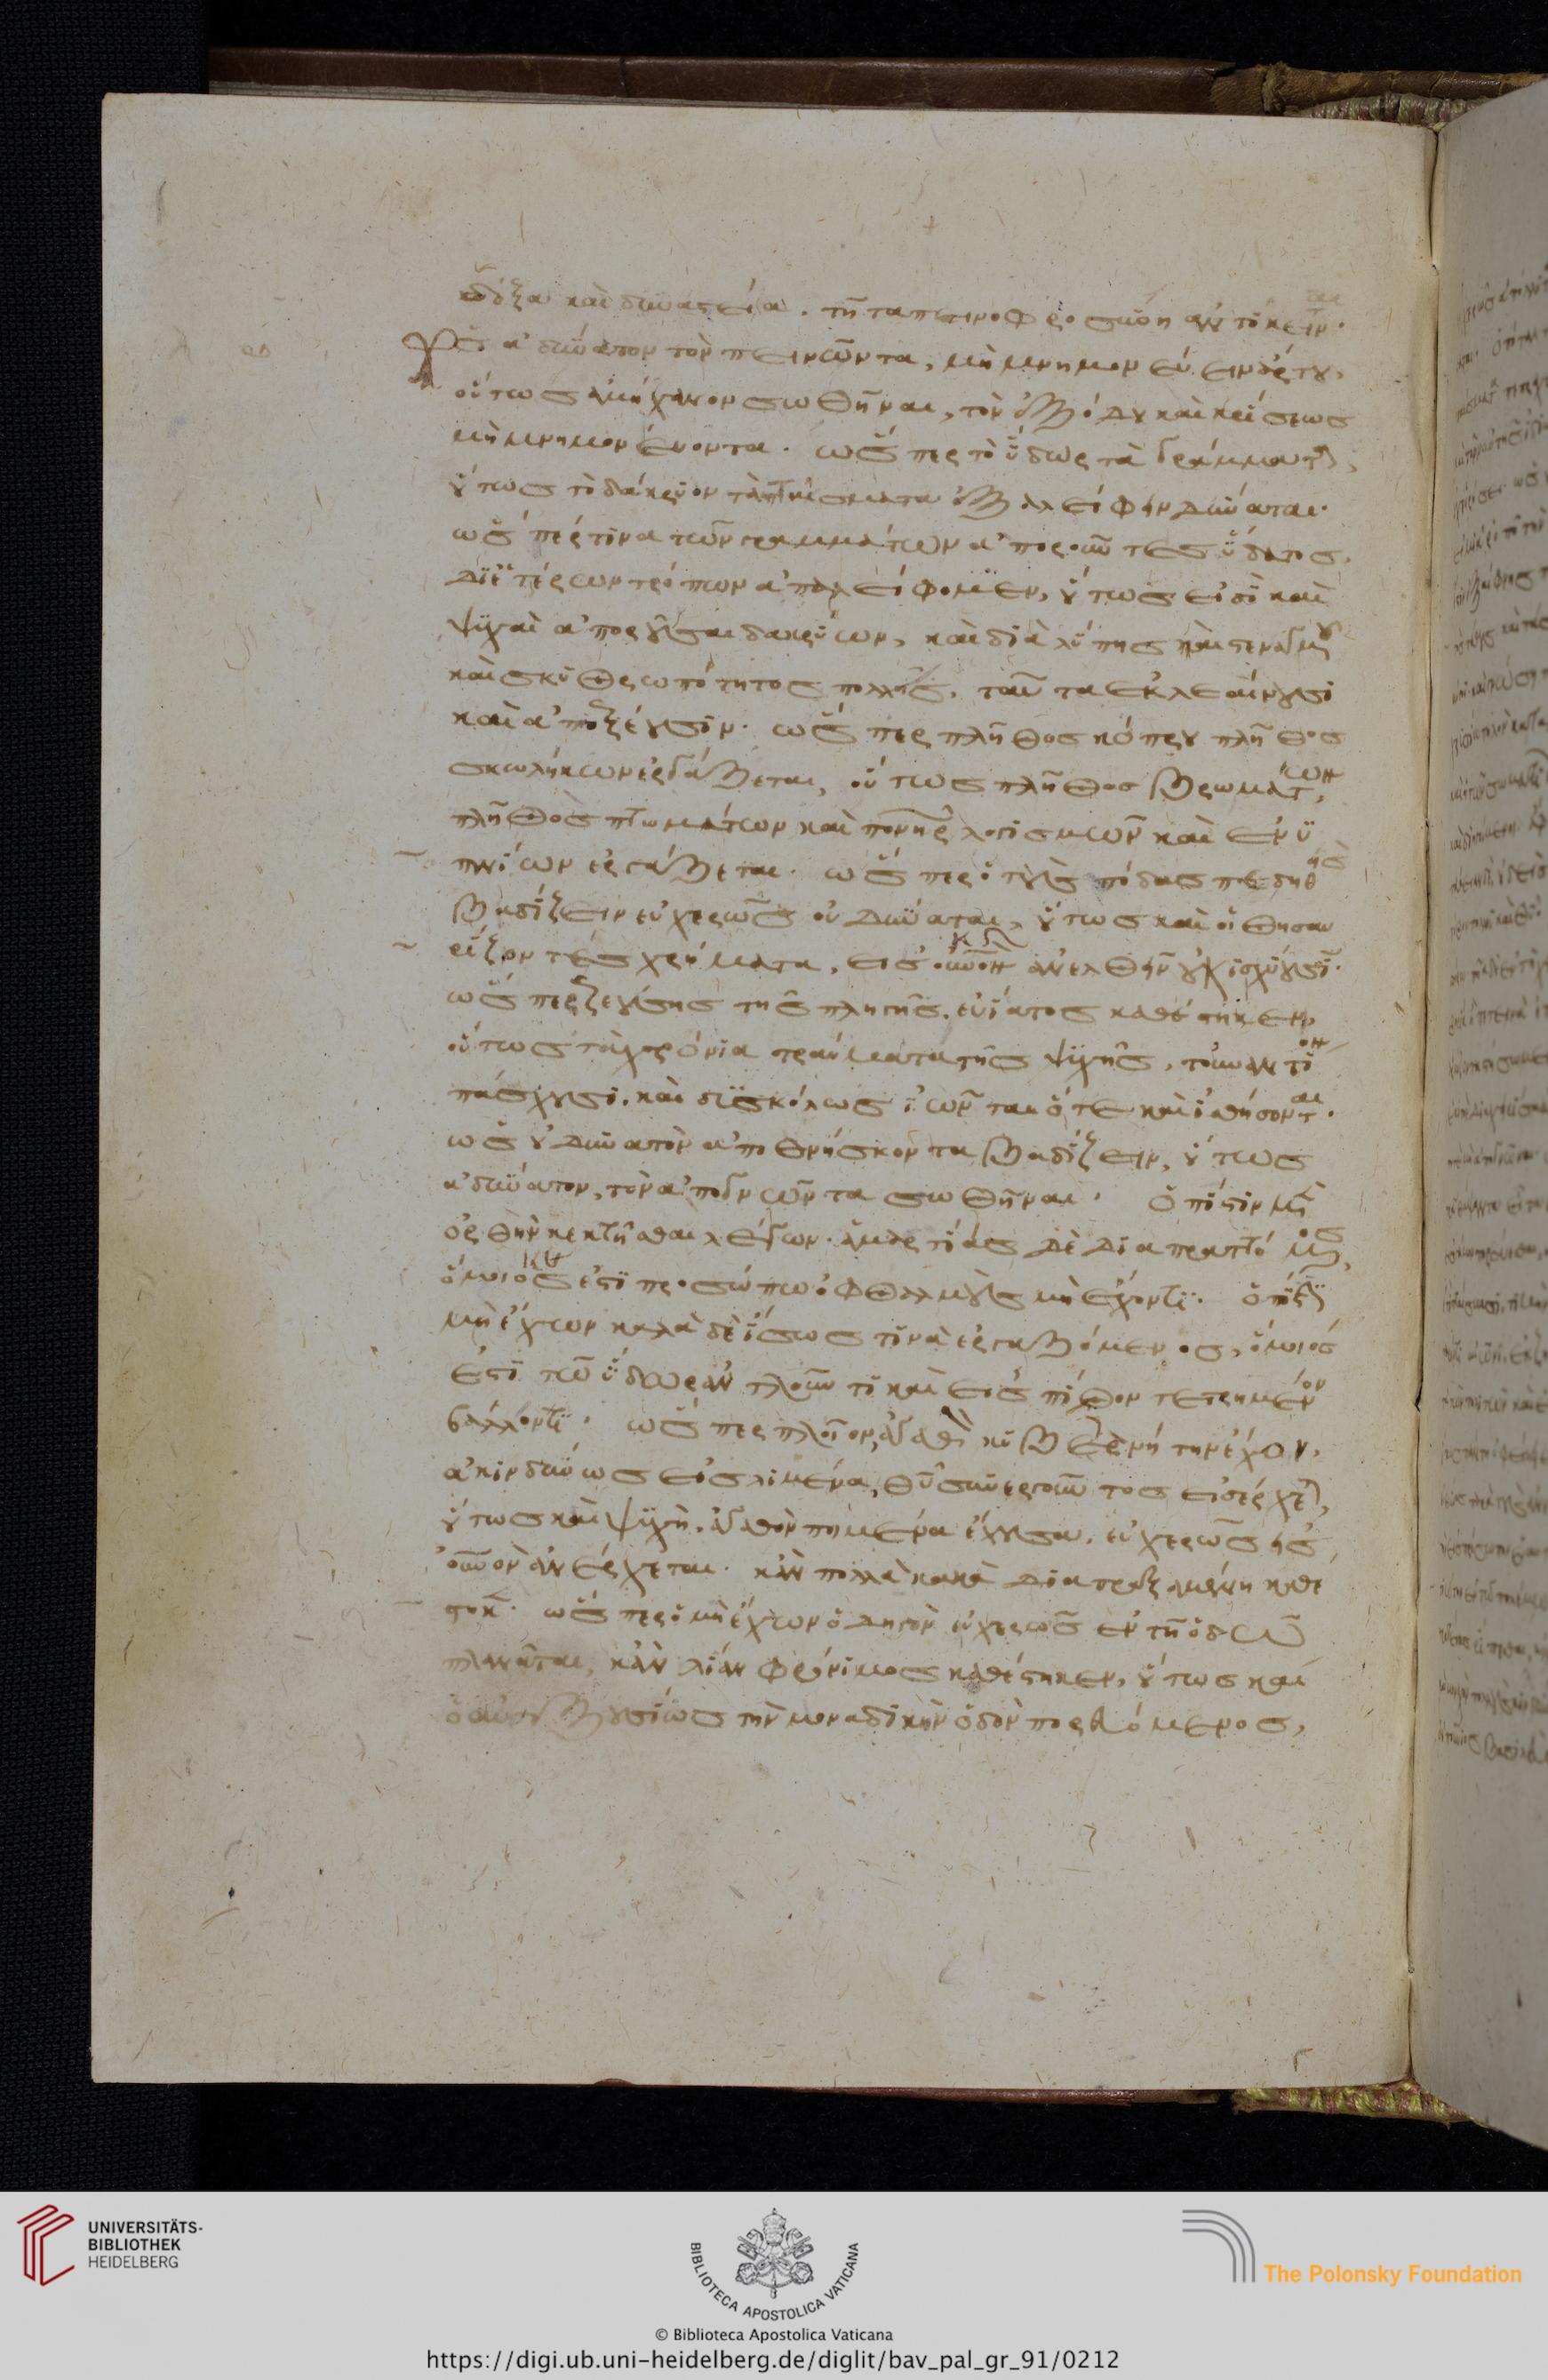 δόξα καὶ δυναστεία. τῇ ταπεινοφροσύνη ἀντίκεινται.
Ὡς ἀδύνατον τὸν πεινῶντα, μὴ μνημονεύειν ἄρτου,
οὕτως ἀμήχανον σωθῆναι, τὸν ἐξόδου καὶ κρίσεως
μὴ μνημονεύοντα. ὥσπερ τὸ ὕδωρ τὰ γράμματα,
οὕτως τὸ δάκρυον τὰ πταίσματα ἐξαλείφειν δύναται.
ὥσπέρ τινα τῶν γραμμάτων ἀποροῦντες ὕδατος,
δι' ἑτέρων τρόπων ἀπαλείφομεν, οὕτως εἰσὶ καὶ
ψυχαὶ ἀποροῦσαι δακρύων, καὶ διὰ λύπης καὶ στεναγμοῦ
καὶ σκυθρωπότητος πολλῆς, ταῦτα ἐκλεαίνουσι
καὶ ἀποξέουσιν. ὥσπερ πλῆθος κόπρου πλῆθος
σκωλήκων ἐργάζεται, οὕτως πλῆθος βρωμάτων,
πλῆθος πτωμάτων καὶ πονηρῶν λογισμῶν καὶ ἐνυ
πνίων ἐργάζεται. ὥσπερ ὁ τοὺς πόδας πεδηθεὶς
βαδίζειν εὐχερῶς οὐ δύναται, οὕτως καὶ οἱ θησαυ
ρίζοντες χρήματα, εἰς οὐρανὸν ἀνελθεῖν οὐκ ἰσχύουσι.
ὥσπερ ζεούσης τῆς πληγῆς, εὐίατος καθέστηκεν,
οὕτως τὰ χρόνια τραύματα τῆς ψυχῆς, τοὐναντίον
πάσχουσι. καὶ δυσκόλως ἰῶνται ὅτε καὶ ἰαθήσονται.
ὡς οὐ δυνατὸν ἀποθνήσκοντα βαδίζειν, οὕτως
ἀδύνατον, τὸν ἀπογνῶντα σωθῆναι. ὁ πίστιν μὲν
ὀρθὴν κεκτῆσθαι λέγων. ἁμαρτίας δὲ διαπραττόμενος,
ὅμοιός ἐστι προσώπω ὀφθαλμοὺς μὴ ἔχοντι. ὁ πίστιν
μὴ ἔχων καλὰ δὲ ἴσως τινὰ ἐργαζόμενος, ὅμοιός
ἐστι τῶ ὕδωρ ἀντλοῦντι καὶ εἰς πίθον τετρημένον
βάλλοντι. ὥσπερ πλοῖον, ἀγαθὸν κυβερνήτην ἔχον,
ἀκινδύνως εἰς λιμένα, θεοῦ συνεργοῦντος εἰσέρχεται,
οὕτως καὶ ψυχὴ. ἀγαθὸν ποιμένα ἔχουσα. εὐχερῶς εἰς
οὐρανὸν ἀνέρχεται. κἂν πολλὰ κακὰ διαπραξαμένη καθέ
στηκε. ὥσπερ ὁ μὴ ἔχων ὁδηγὸν εὐχερῶς ἐν τῇ ὁδῶ
πλανᾶται, κἂν λίαν φρόνιμος καθέστηκεν, οὕτως καὶ
ὁ αὐτεξουσίως τὴν μοναδικὴν ὁδὸν πορευόμενος,
UNIVERSITÄTS-
BIBLIOTHEK
HEIDELBERG
BIBLIOTECA APOSTOLICA VATICANA
The Polonsky Foundation
© Biblioteca Apostolica Vaticana
https://digi.ub.uni-heidelberg.de/diglit/bav_pal_gr_91/0212